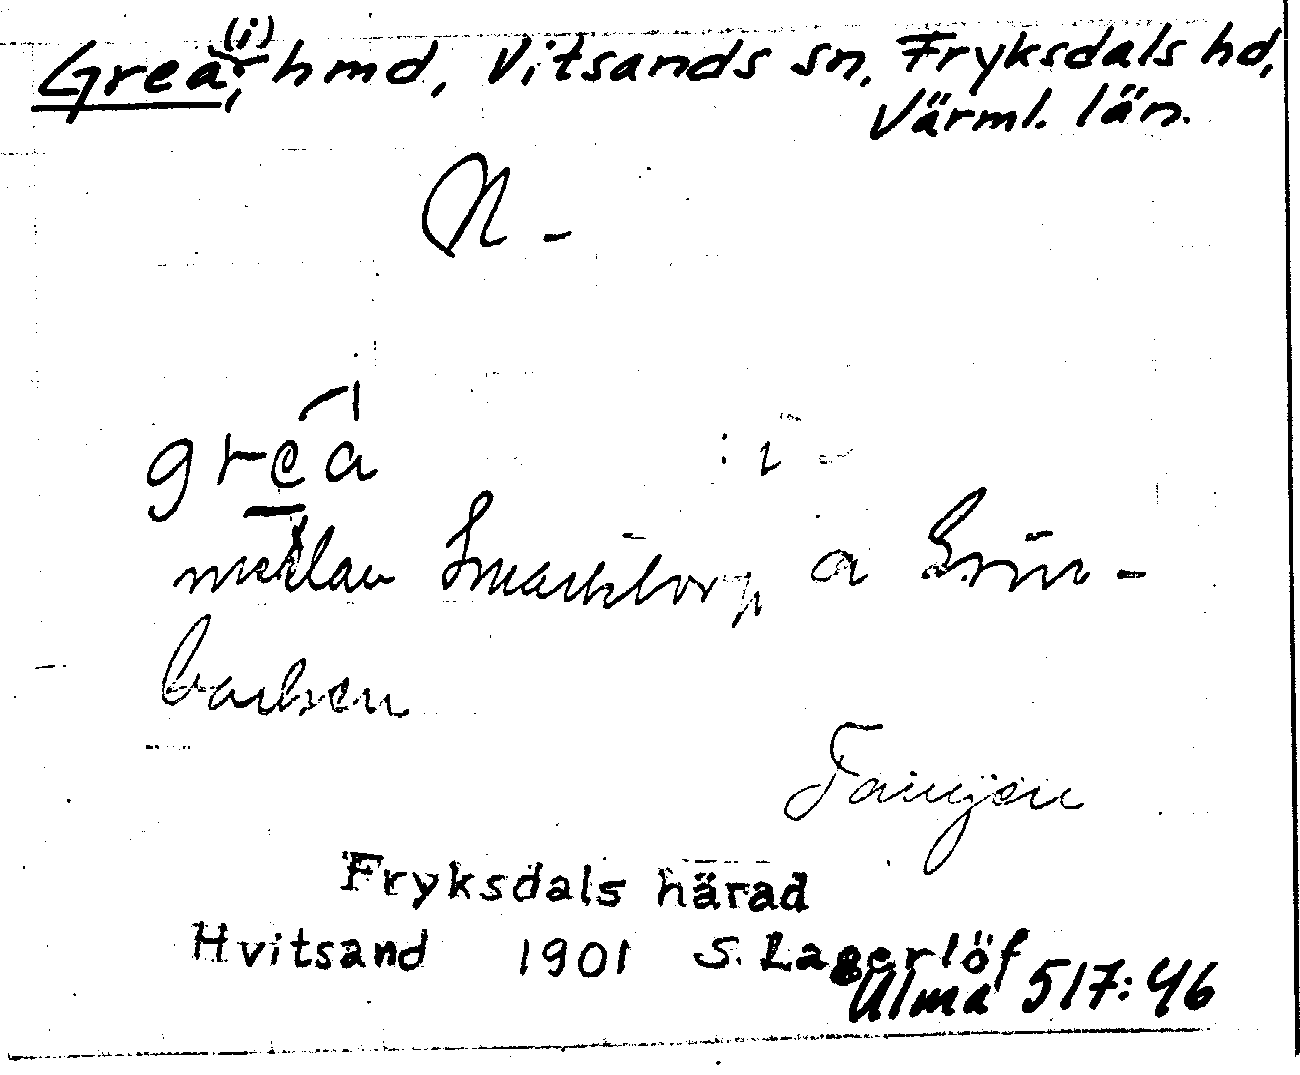 Greá, (i) hmd, Vitsands sn, Fryksdals hd,
Värml. län.
N -
greá : i -
mellan Smarktorp a Grün-
backen
Fryksdals härad
Hvitsand 1901 S. Lagerlöf
Ulma 517:46